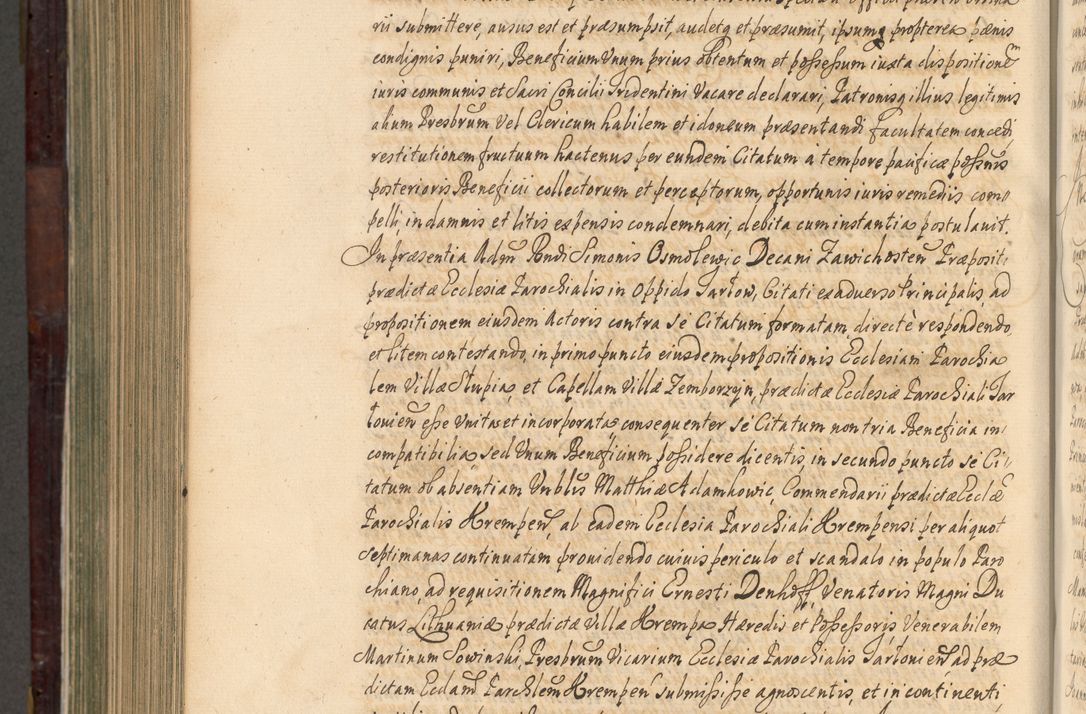 rii submittere, ausus est et præsumpsit, audetq et præsumit, ipsumq propterea pænis
condignis puniri, Beneficium Vnum prius obtentum et possessum iuxta dispositionem
iuris communis et Sacri Concilii Tridentini Vacare declarari, Patronisq illius legitimis
alium Presbrum Vel Clericum habilem et idoneum præsentandi facultatem concedi
restitutionem fructuum hactenus per eundem Citatum à tempore pacificæ possnis
posterioris Beneficii collectorum et perceptorum, opportunis iuris remediis com
pelli, in damnis et litis expensis condemnari, debita cum instantia postulauit.
In præsentia Adm Rndi Simonis Osmolewic Decani Zawichosten Præpositi
prædictæ Ecclesiæ Parochialis in oppido Tarłow, Citati ex aduerso Principalis, ad
propositionem eiusdem Actoris contra se Citatum formatam directè respondendo,
et litem contestando, in primo puncto eiusdem propositionis Ecclesiam Parochia
lem Villæ Słupia, et Capellam Villæ Zemborzyn, prædictæ Ecclesiæ Parochiali Tar
łouien esse Vnitas et incorporatas consequenter se Citatum non tria Beneficia in
compatibilia, sed Vnum Beneficium possidere dicentis, in secundo puncto se Ci
tatum ob absentiam Vnblis Matthiæ Adamkowic, Commendarii prædictæ Ecclæ
Parochialis Krempen, ab eadem Ecclesia Parochiali Krempensi per aliquot
septimanas continuatam prouidendo cuiuis periculo et scandalo in populo Paro
chiano, ad requisitionem Magnifici Ernesti Denhoff, Venatoris Magni Du
catus Lithuaniæ prædictæ Villæ Krempa Hæredis et Possessoris, Venerabilem
Martinum Sowinski, Presbrum Vicarium Ecclesiæ Parochialis Tarłouien ad præ
dictam Ecclam Parochlem Krempen submisisse agnoscentis, et in continenti